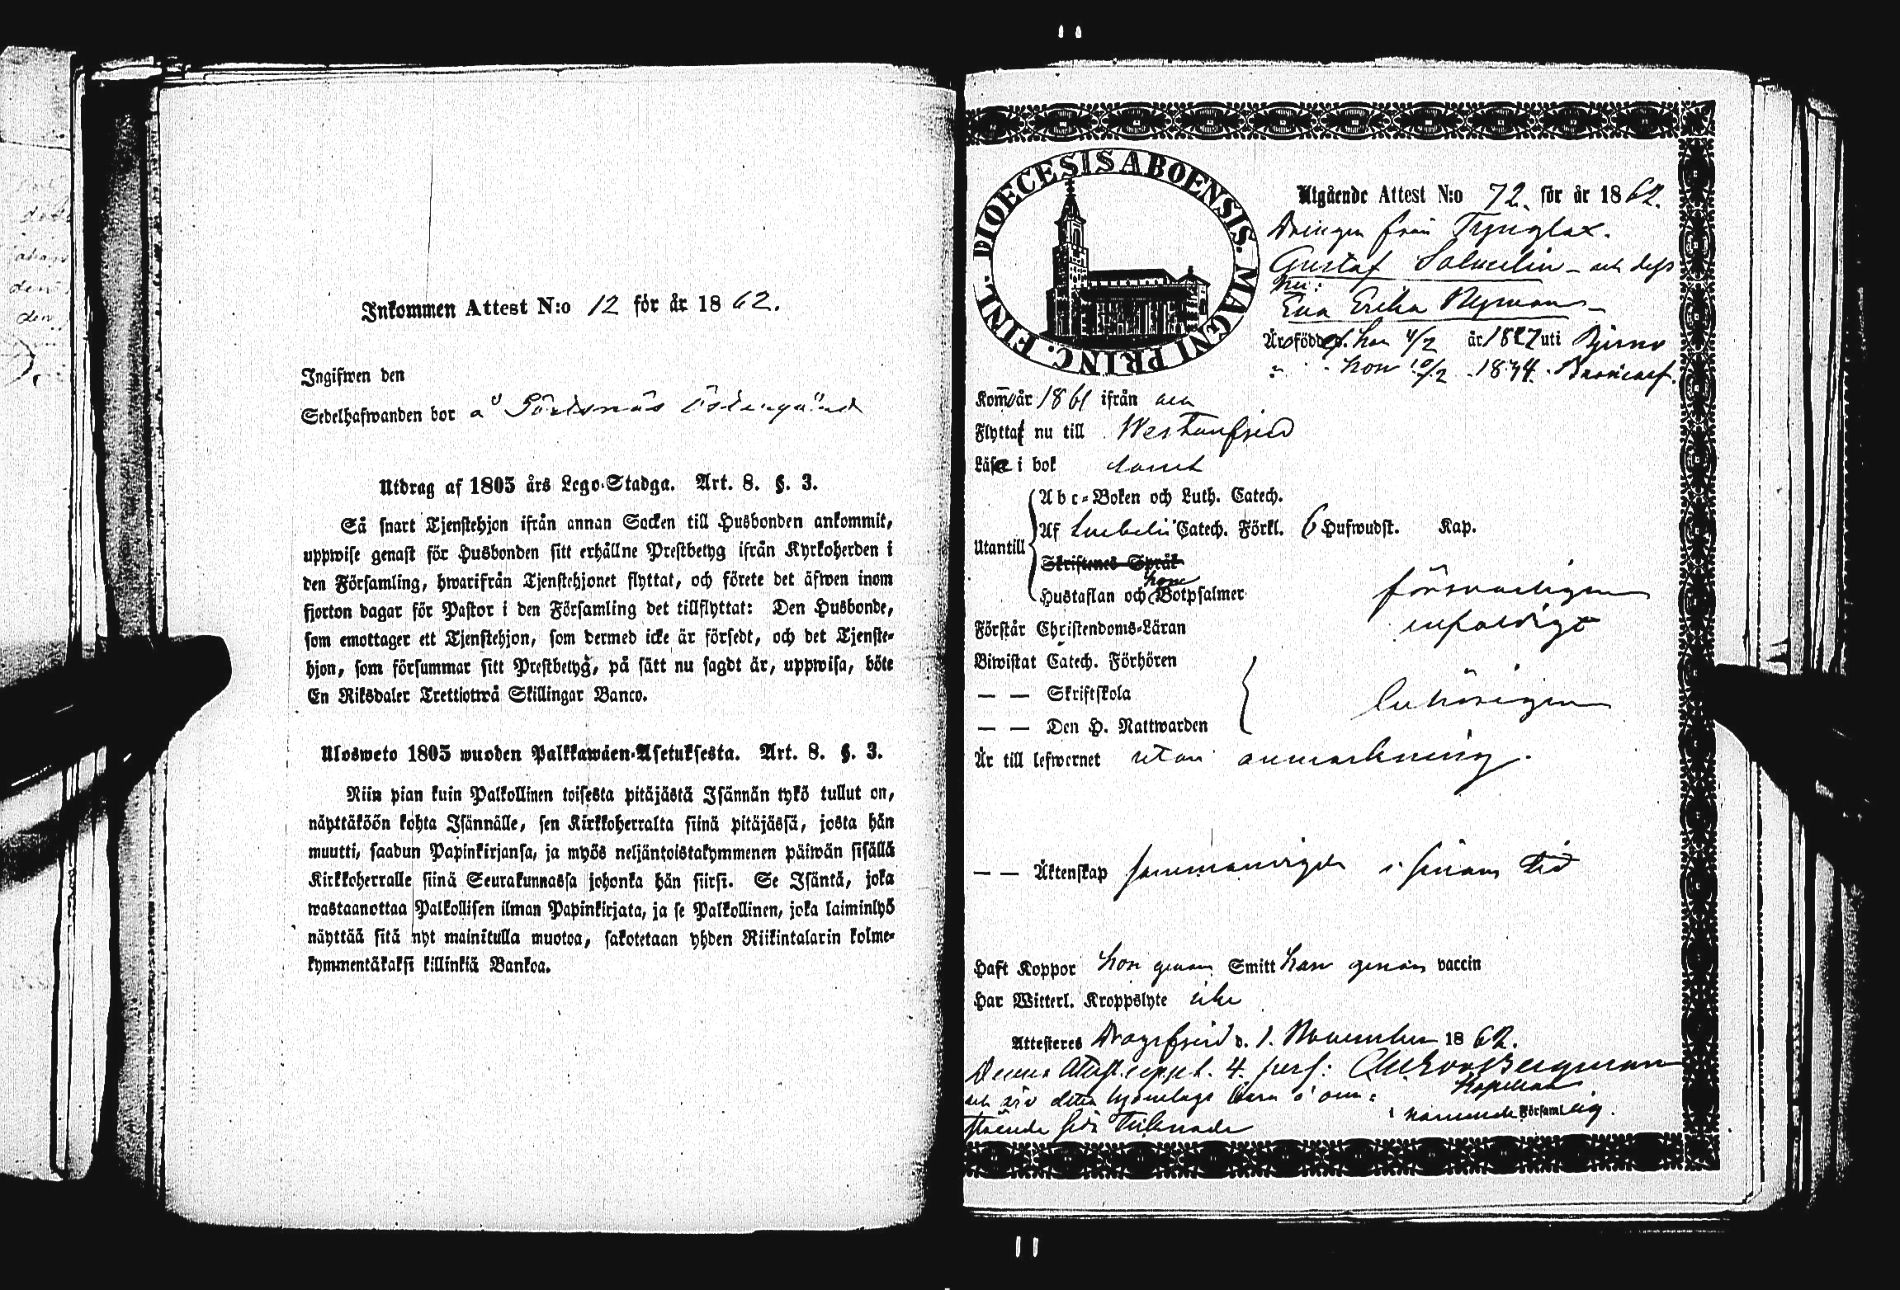 Inkommen Attest N:o 12 för år 1862.
Ingifwen den
Sedelhafwanden bor å Södsnäs Östergård
Utdrag af 1805 års Lego-Stadga. Art. 8. §. 3.
Så snart Tjenstehjon ifrån annan Socken till Husbonden ankommit,
uppwise genast för Husbonden sitt erhållne Prestbetyg ifrån Kyrkoherden i
den Församling, hwarifrån Tjenstehjonet flyttat, och förete det äfwen inom
fjorton dagar för Pastor i den Församling det tillflyttat: Den Husbonde,
som emottager ett Tjenstehjon, som dermed icke är försedt, och det Tjenste-
hjon, som försummar sitt Prestbetyg, på sätt nu sagdt är, uppwisa, böte
En Riksdaler Trettiotwå Skillingar Banco.
Ulosweto 1805 wuoden Palkkawäen-Asetuksesta. Art. 8. §. 3.
Niin pian kuin Palkollinen toisesta pitäjästä Isännän tykö tullut on,
näyttäköön kohta Isännälle, sen Kirkkoherralta siinä pitäjässä, josta hän
muutti, saadun Papinkirjansa, ja myös neljäntoistakymmenen päiwän sisällä
Kirkkoherralle siinä Seurakunnassa johonka hän siirsi. Se Isäntä, joka
wastaanottaa Palkollisen ilman Papinkirjata, ja se Palkollinen, joka laiminlyö
näyttää sitä nyt mainitulla muotoa, sakotetaan yhden Riikintalarin kolme-
kymmentäkaksi killinkiä Bankoa.
DIOECESIS ABOENSIS. MAGNI PRINC. FINL.
Utgående Attest N:o 72. för år 1862.
Drängen från Tynglax.
Gustaf Salmelin - och dess
hu:
Eva Erika Nyman
Äro födde han 4/2 år 1827 uti Bjerno
hon 10/2 1834.
Kom år 1861 ifrån
Flyttat nu till Westanfjerd
Läsa i bok
Utantill
Abc-Boken och Luth. Catech.
Af Catech. Förkl. 6 Hufwudst. Kap.
Skriftenes Språk
hone
Hustaflan och Botpsalmer försvarligen
Förstår Christendoms-Läran enfaldigt
Biwistat Catech. Förhören
— — Skriftskola
— — Den H. Nattwarden behörigen
Är till lefwernet utan anmärkning.
— — Äktenskap sammanvigde i sinom tid
Haft Koppor hon genom Smitt han genom vaccin
Har Witterl. Kroppslyte icke
Attesteres Dragsfjerd d. 1. November 1862.
Denna Attest uppt. 4. pers: Bergman
Kapellan
och äro deras
i nämnde Församling.
stående sida tecknade